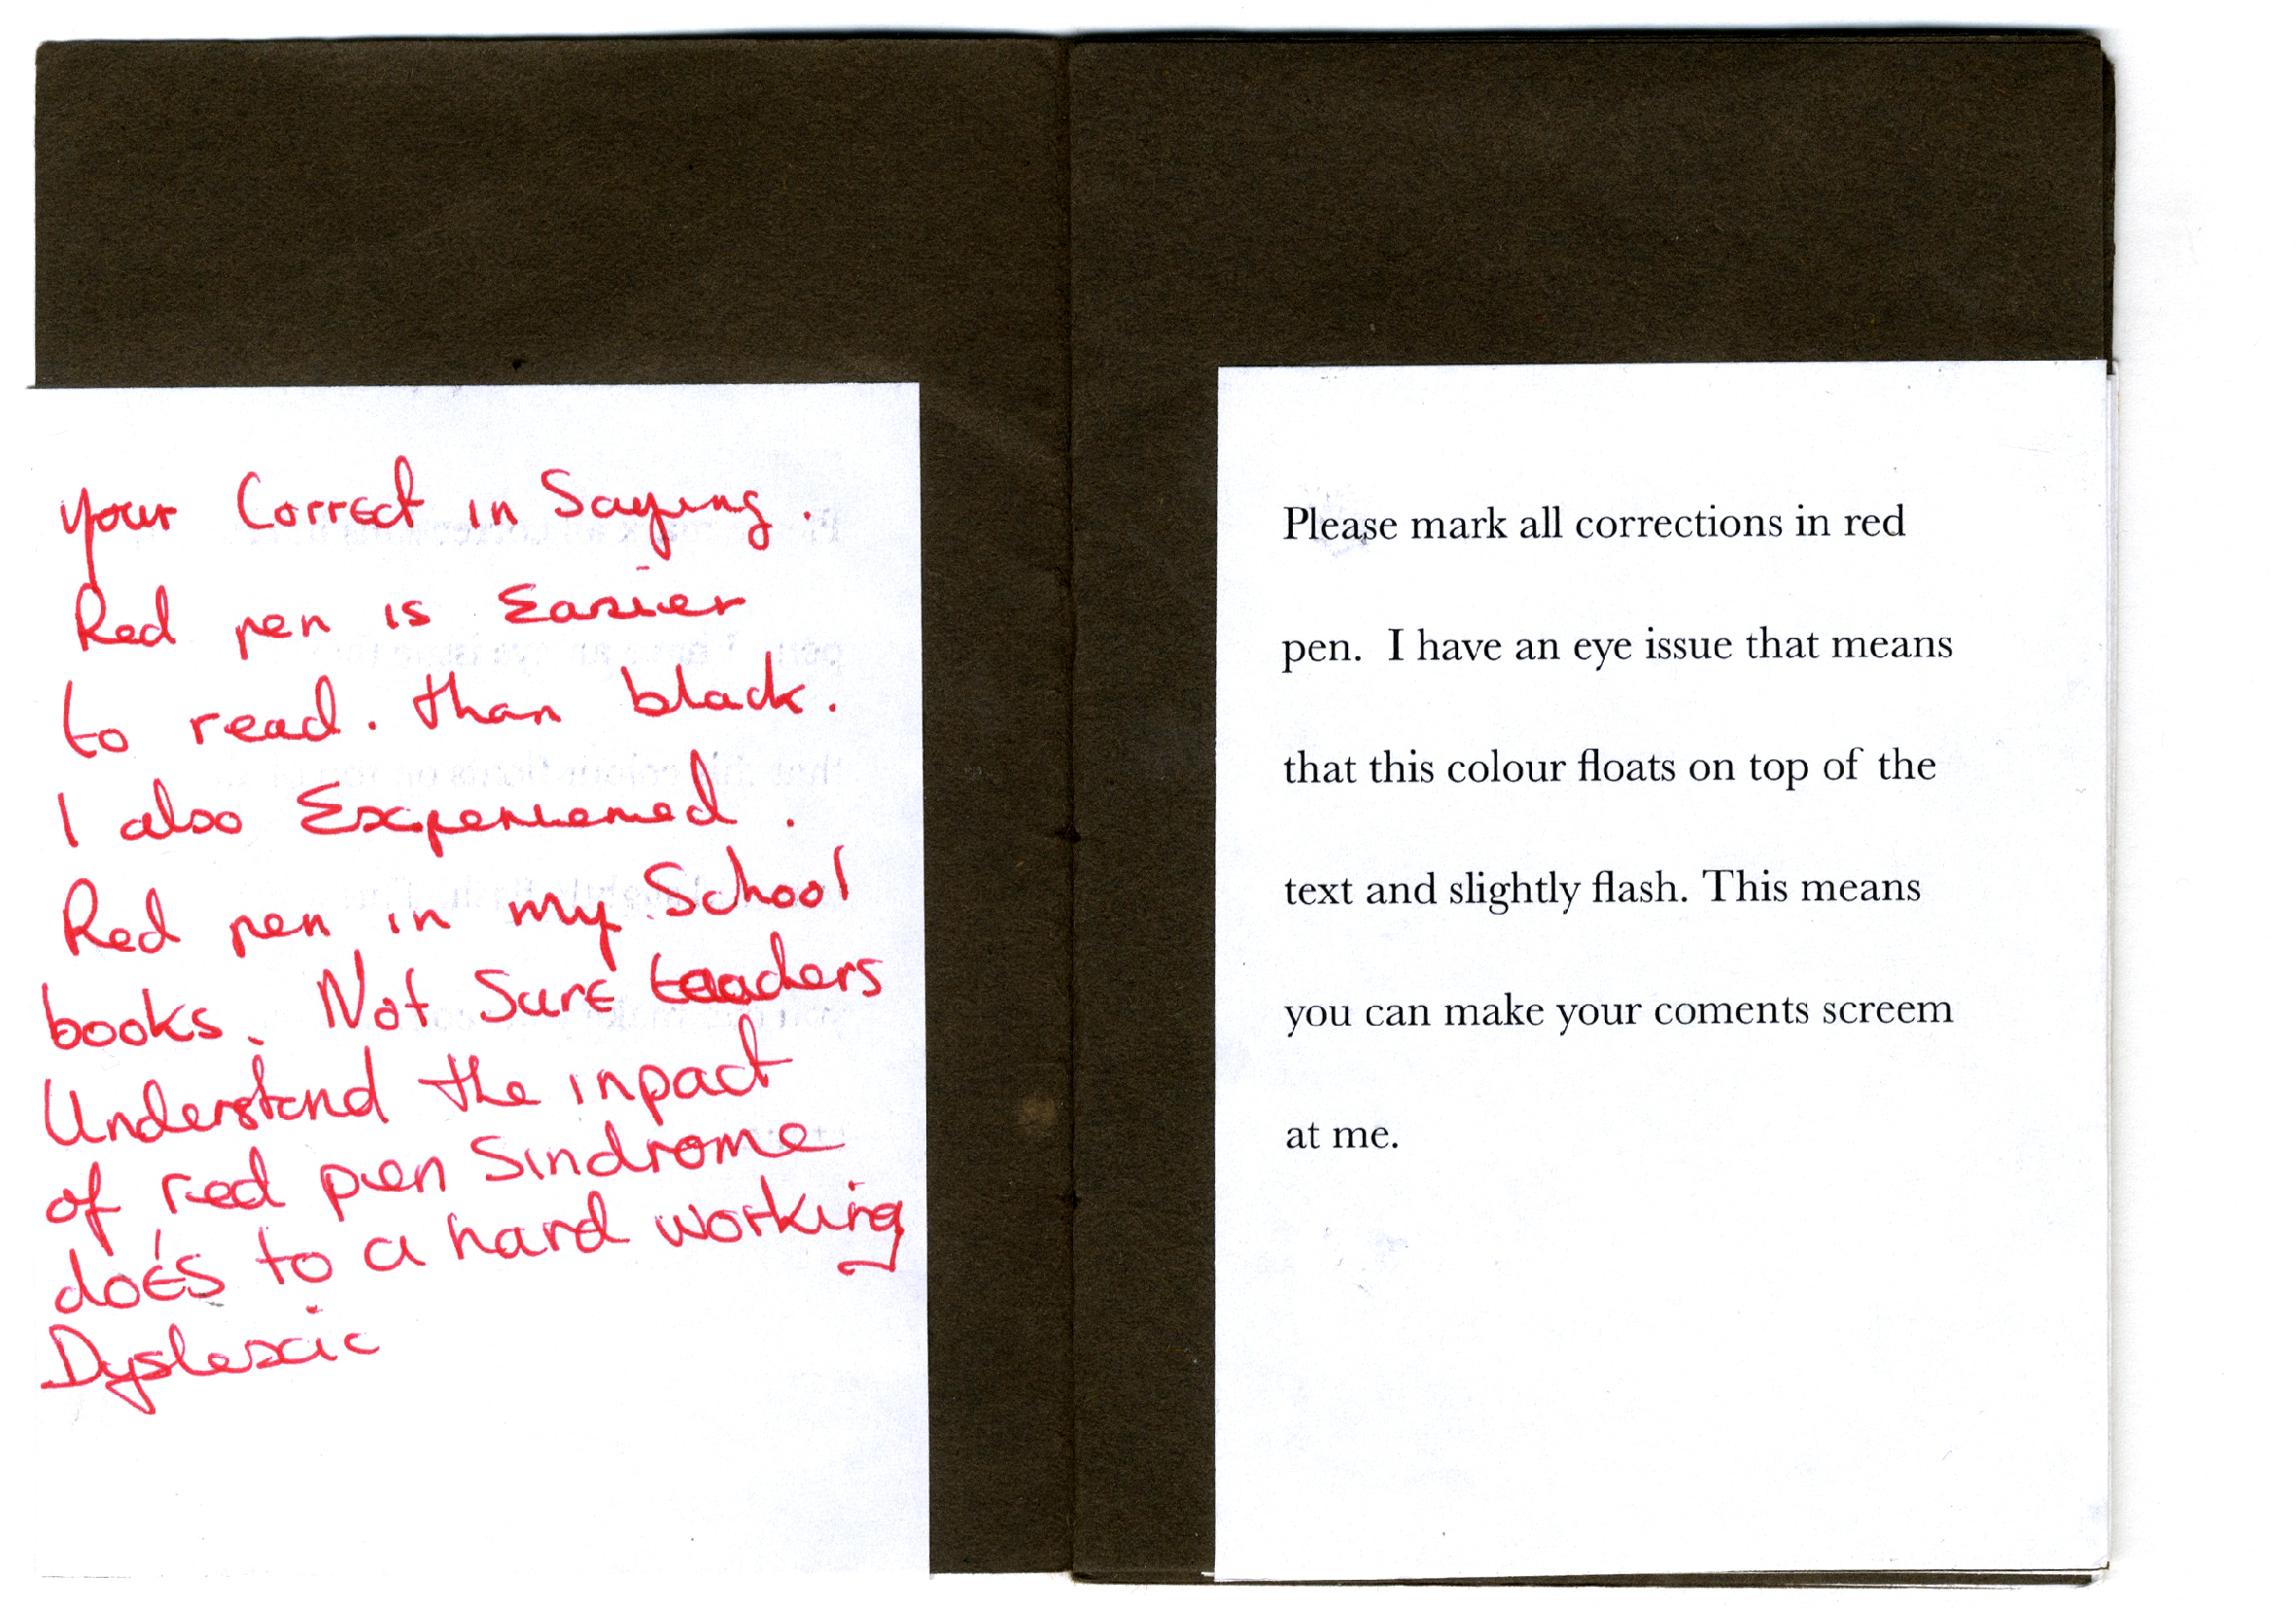 your Correct in Saying.
Red pen is Easier
to read. than black.
I also Experienced.
Red pen in my School
books. Not Sure teachers
Understand the inpact
of red pen Sindrome
does to a hard working
Dyslexic
Please mark all corrections in red
pen. I have an eye issue that means
that this colour floats on top of the
text and slightly flash. This means
you can make your coments screem
at me.